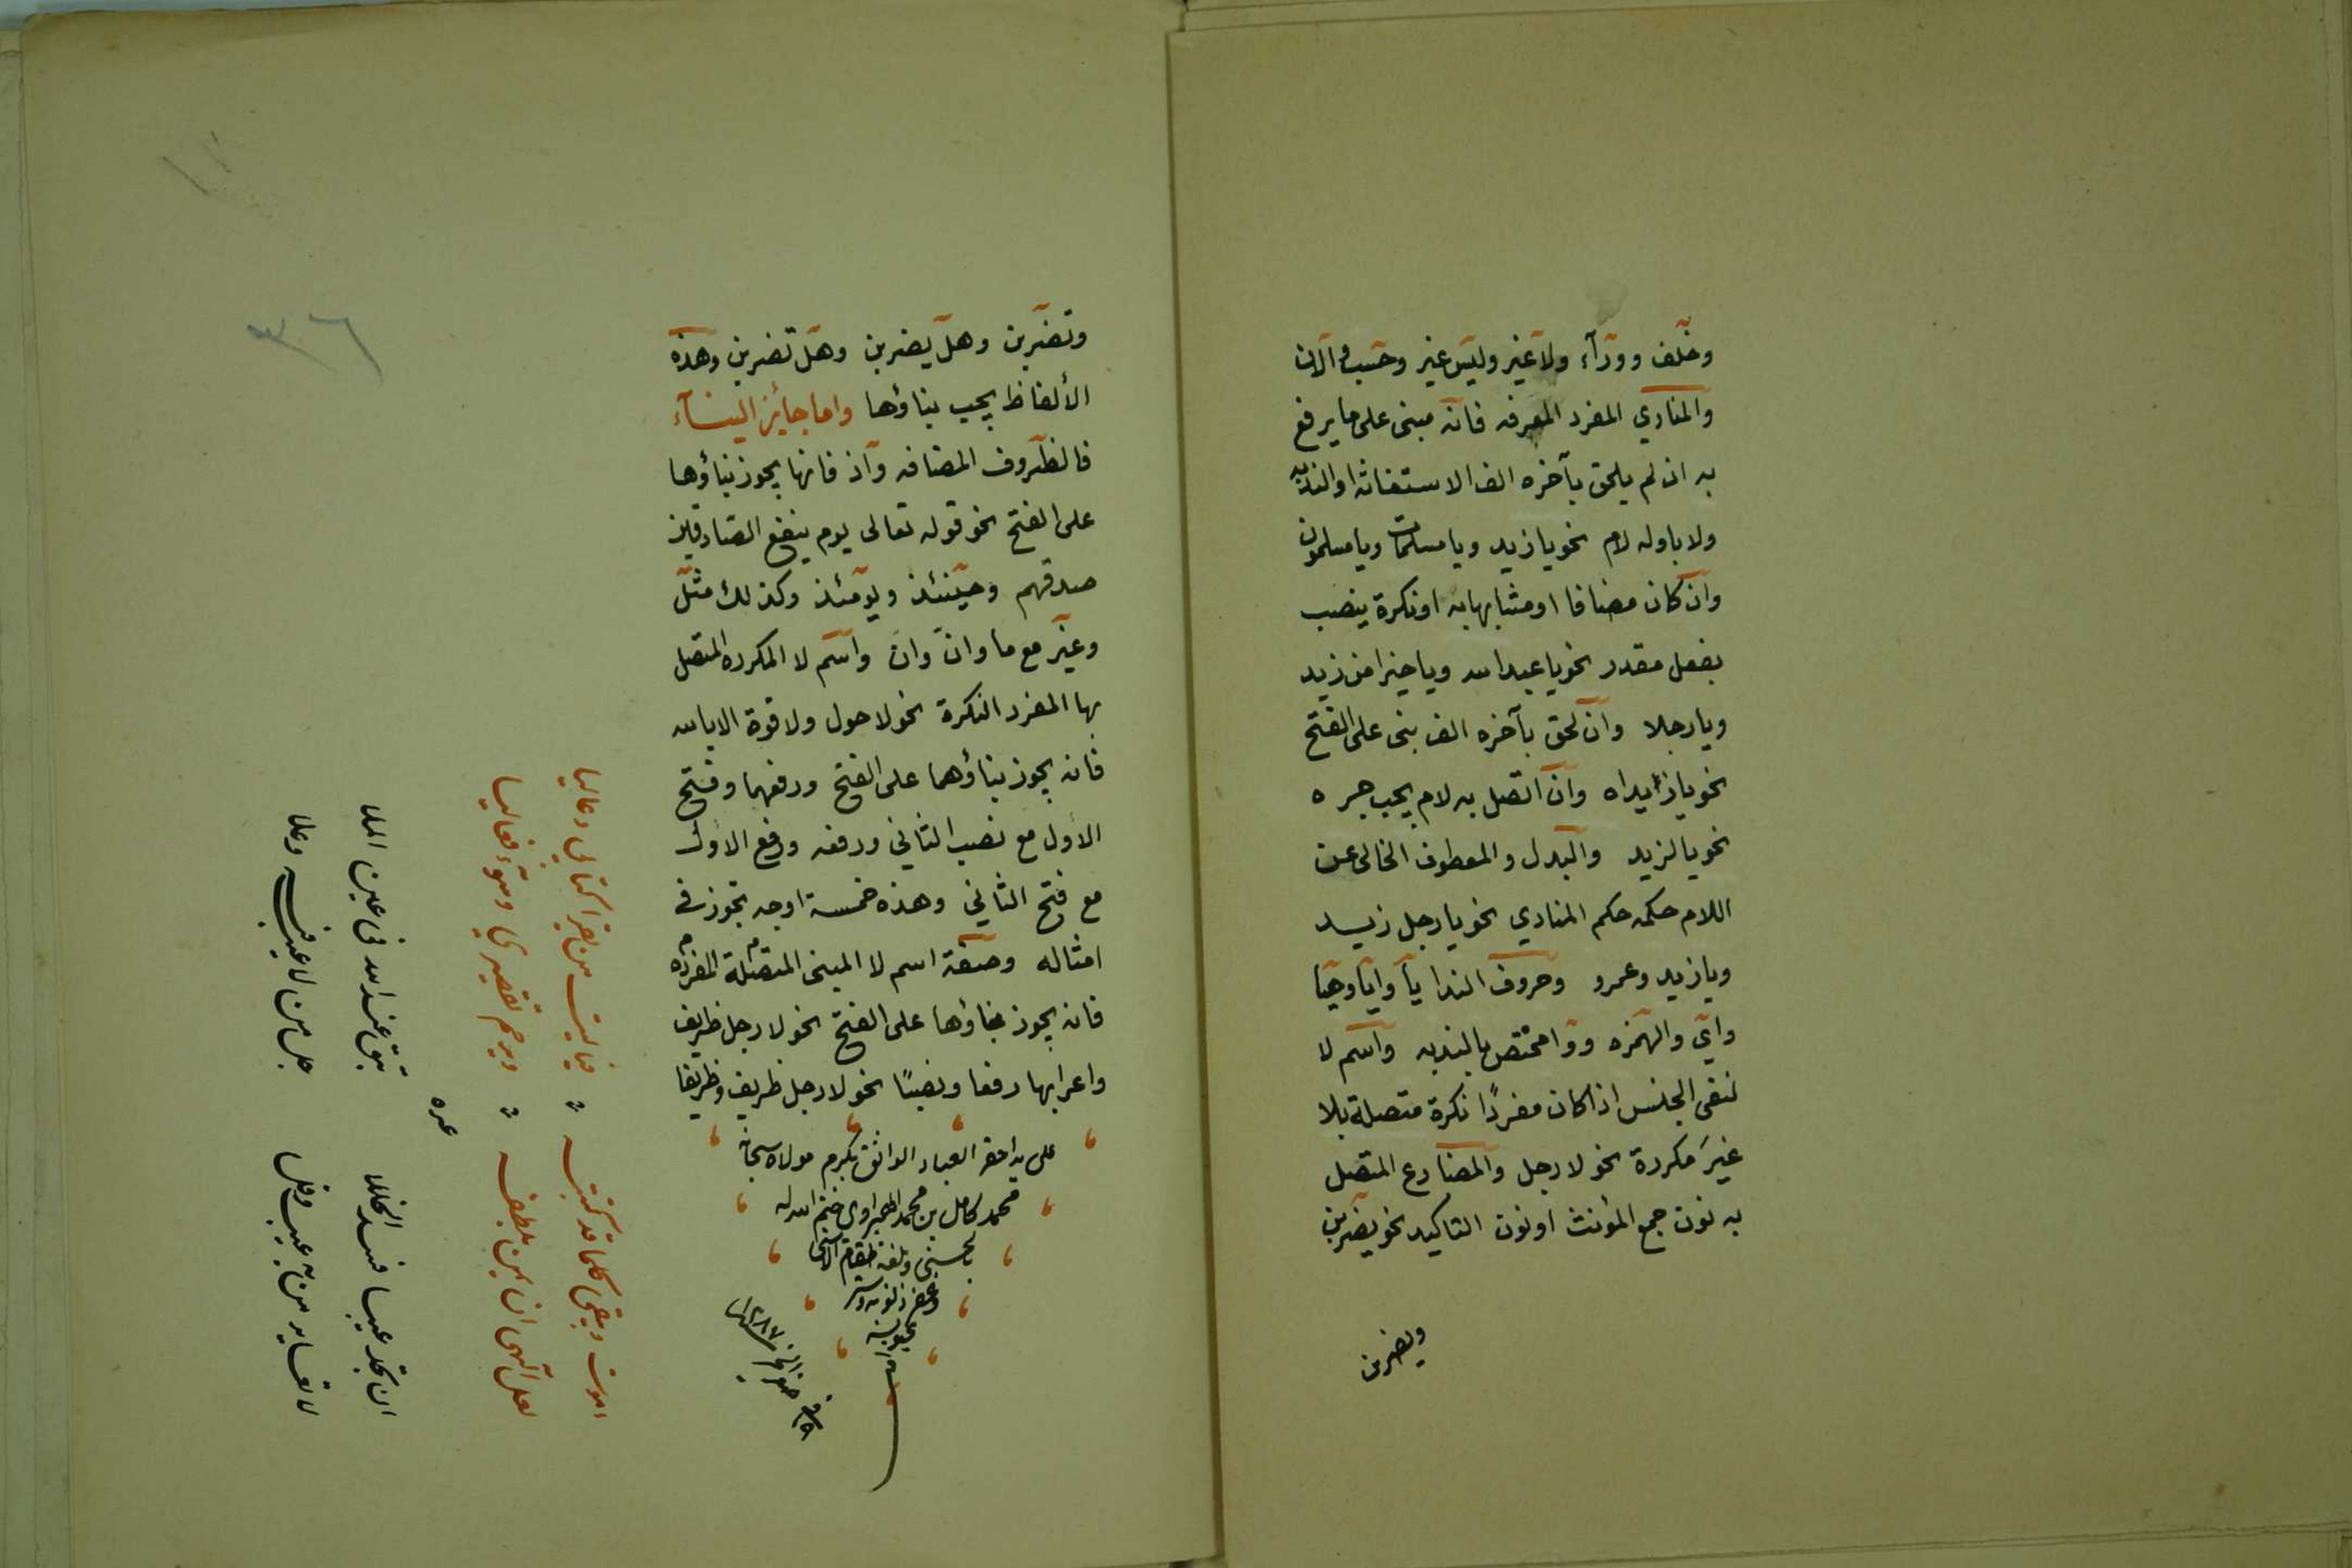 وخلف ووراء ولا غير وليس غير وحسب والآن
والمنادي المفرد المعرفه فانه مبنى على ما يرفع
به ان لم يلحق بآخره الف الاستغاثه او الندبه
ولا باوله لام نحو يا زيد ويا مسلمات ويا مسلمون
وان كان مضافا او مشابها به او نكرة ينصب
بفعل مقدر نحو يا عبد الله ويا خيرا من زيد
ويا رجلا وان لحق بآخره الف بنى على الفتح
نحو يا زيداه وان اتصل به لام يجب جره
نحو يا لزيد والبدل والمعطوف الخالى عن
اللام حكمه حكم المنادي نحو يا رجل زيد
ويا زيد وعمرو وحروف الندا يا وايا وهيا
واي والهمزه ووا مختص بالندبه واسم لا
لنفى الجنس اذا كان مفردًا نكرة متصلة بلا
غيرَ مكررة نحو لا رجل والمضارع المتصل
به نون جمع المؤنث او نون التاكيد نحو يضربن
ويضربن
٣٦
وتضربن وهل يضربن وهل تضربن وهذه
الألفاظ يجب بناؤها واما جائز البناء
فالظروف المضافه واذ فانها يجوز بناؤها
على الفتح نحو قوله تعالى يوم ينفع الصادقين
صدقهم وحينئذ ويومئذ وكذلك مثل
وغير مع ما وان وانّ واسم لا المكرره المتصل
بها المفرد النكرة نحو لا حول ولا قوة الا بالله
فانه يجوز بناؤهما على الفتح ورفعهما وفتح
الأول مع نصب الثاني ورفعه ورفع الاول
مع فتح الثاني وهذه خمسة اوجه تجوز فى
امثاله وصفة اسم لا المبنى المتصلة المفرده
فانه يجوز بناؤها على الفتح نحو لا رجل ظريف
واعرابها رفعا ونصبًا نحو لا رجل ظريف وظريفا
على يد احقر العباد الواثق بكرم مولاه سبحانه
محمد كامل بن محمد ختم الله له
بالحسنى وبلغه المقام الاسنى
وغفر ذنوبه وستر
عيوبه
١٢٨٧
اموت ويبقى كلما قد كتبته ؞ فيا ليت من يقرا كتابي دعا ليا
لعل الهى ان يمن بلطفه ؞ ويرحم تقصيري وسوء فعاليا
غيره
ان تجد عيبا فسد الخللا
جل من لا عيب فيه وعلا